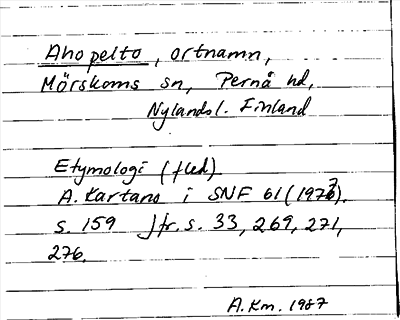 Ahopelto, ortnamn,
Mörskoms sn, Pernå hd,
Nylands l. Finland
Etymologi (fled).
A. Kartano i SNF 61 (1973).
s. 159 Jfr. s. 33, 269, 271,
276.
A.Km. 1987